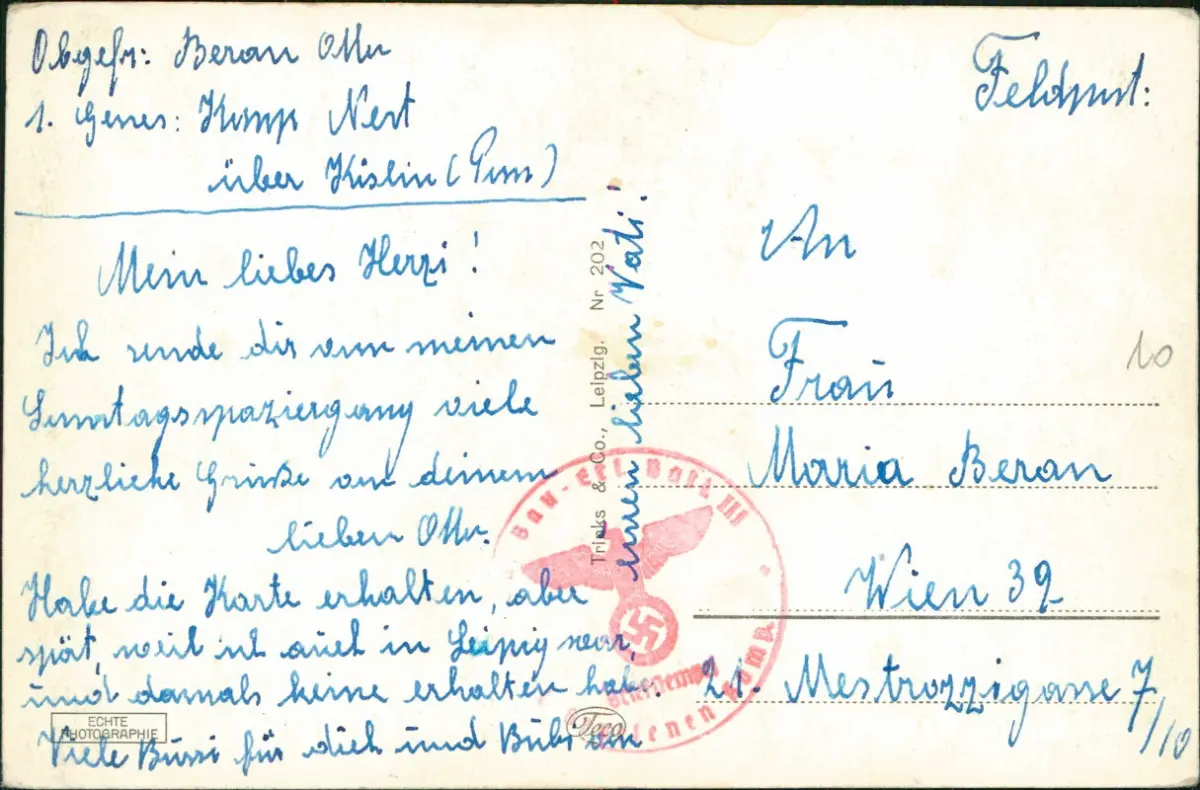 Obgefr: Beran Otto
1. Genes: Komp Nest
über Köslin (Pom)
Mein liebes Herzi!
Ich sende dir von meinen
Sonntagsspaziergang viele
herzliche Grüße von deinem
lieben Otto.
Habe die Karte erhalten, aber
spät, weil ich auch in Leipzig war,
und damals keine erhalten habe.
Viele Bussi für dich und Bubi von
euren lieben Vati!
ECHTE
PHOTOGRAPHIE
Trinks & Co., Leipzig. Nr 202
Teco
Bau-Ers. Batl. III
Briefstempel
Genesenen Komp.
Feldpost:
An
Frau
Maria Beran
Wien 39
21. Mestrozzigasse 7/10
10